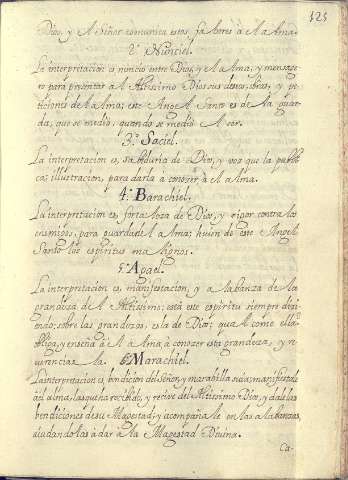 325
Dios, y el Señor comunica estos fabores à el Alma.
2.º Nunciel.
La interpretación es nuncio entre Dios, y el Alma, y mensage-
ro para presentar al Altissimo Dios sus deseos, obras, y pe
ticiones de el Alma; este Angel Santo es de la guar
da, que se medio, quando se medio el ser.
3.º Saciel.
La interpretacion es, sabiduria de Dios, y voz que la publi
ca; illustracion, para darla à conoser à el Alma.
4.º Barachiel.
La interpretacion es fortaleza de Dios, y rigor contra los
enemigos, para guardar el Alma; huien de este Angel
Santo los espiritus malignos.
5.º Apael.
La interpretacion es, manifestacion, y alabanza de las
grandezas de el Altissimo; està este espiritu siempre dizi
endo; sobre las grandezas, es la de Dios; qual como ella
obliga, y enseña à el Alma, à conoser esta grandeza, y re
verenciarla. 6.º Marachiel.
La interpretacion es, bendicion del Señor, y marabillas suias, manifiesta
à el alma, las que ha recibido, y recive del Altissimo Dios, y dale las
bendiciones de su Magestad, y acompañale en las alabanzas
aiudandolas à dar à la Magestad Divina.
Ca-